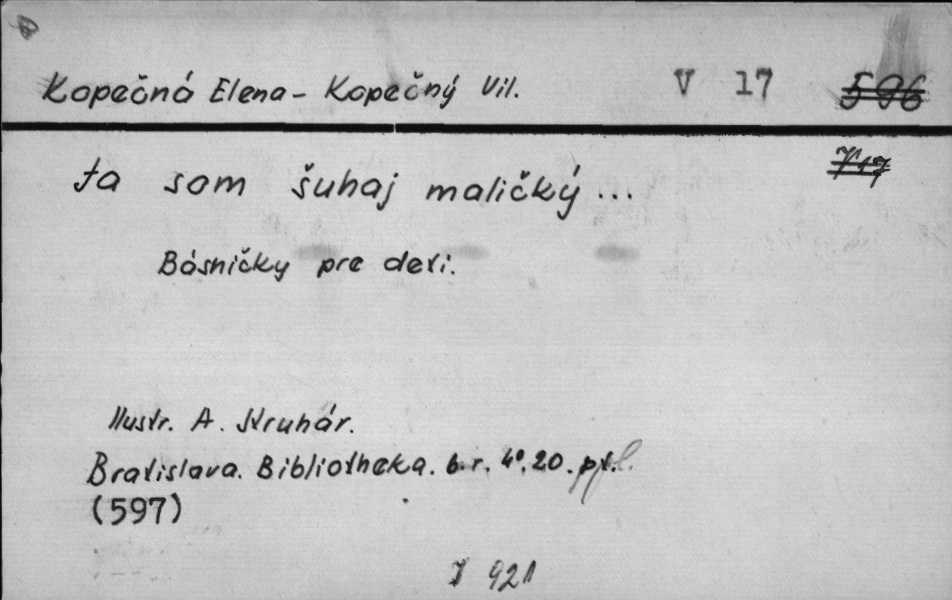 Kopečná Elena - Kopečný Vil. V 17 596
V 17
Ja som šuhaj maličký ...
Básničky pre deti.
Ilustr. A. Struhár.
Bratislava. Bibliotheka. b. r. 4°, 20. pf.
(597)
I 921